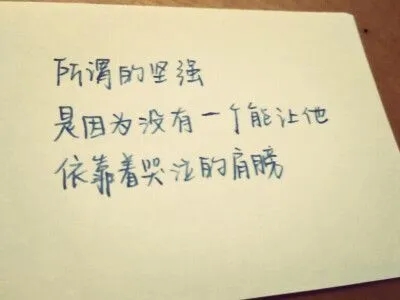 所谓的坚强
是因为没有一个能让他
依靠着哭泣的肩膀